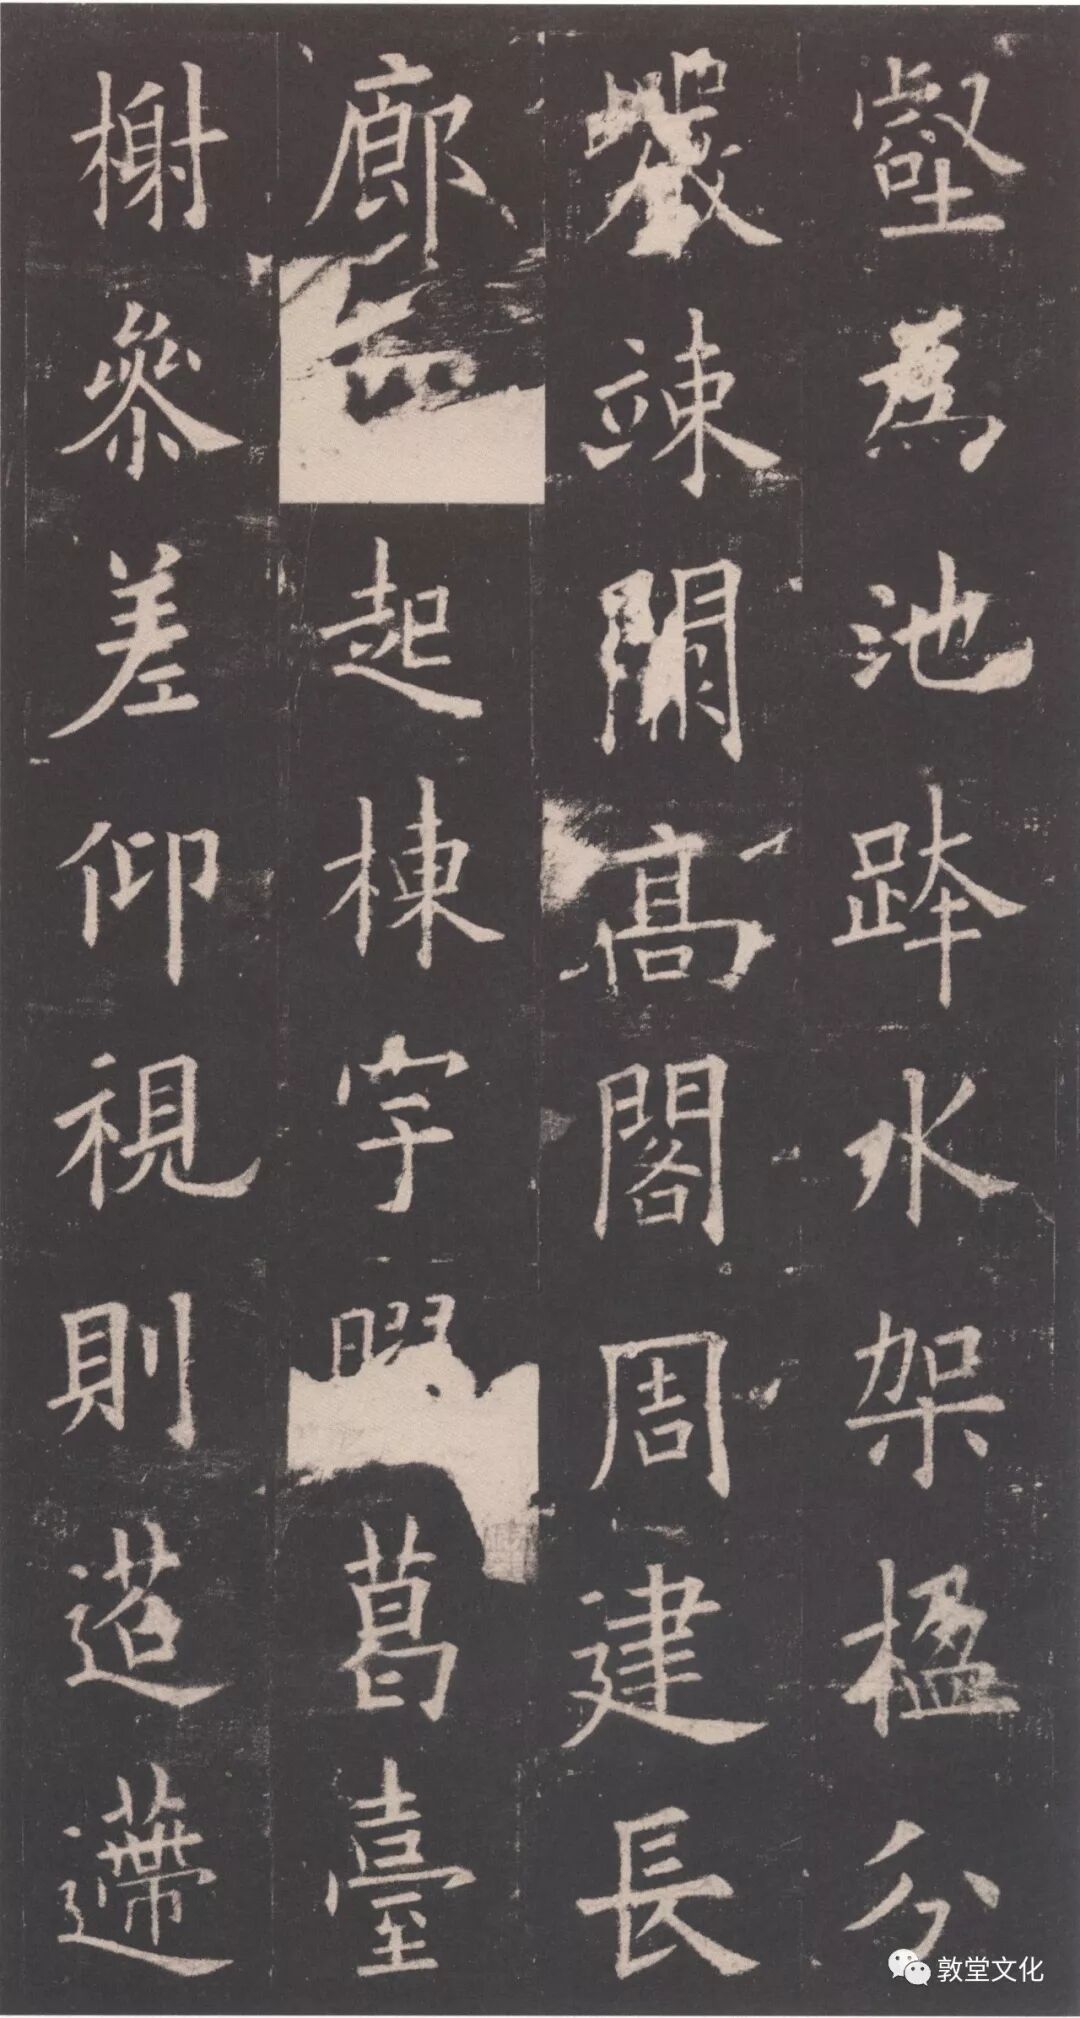 壑為池跨水架楹分
巖竦闕高閣周建長
廊四起棟宇膠葛臺
榭參差仰視則迢遰
敦堂文化